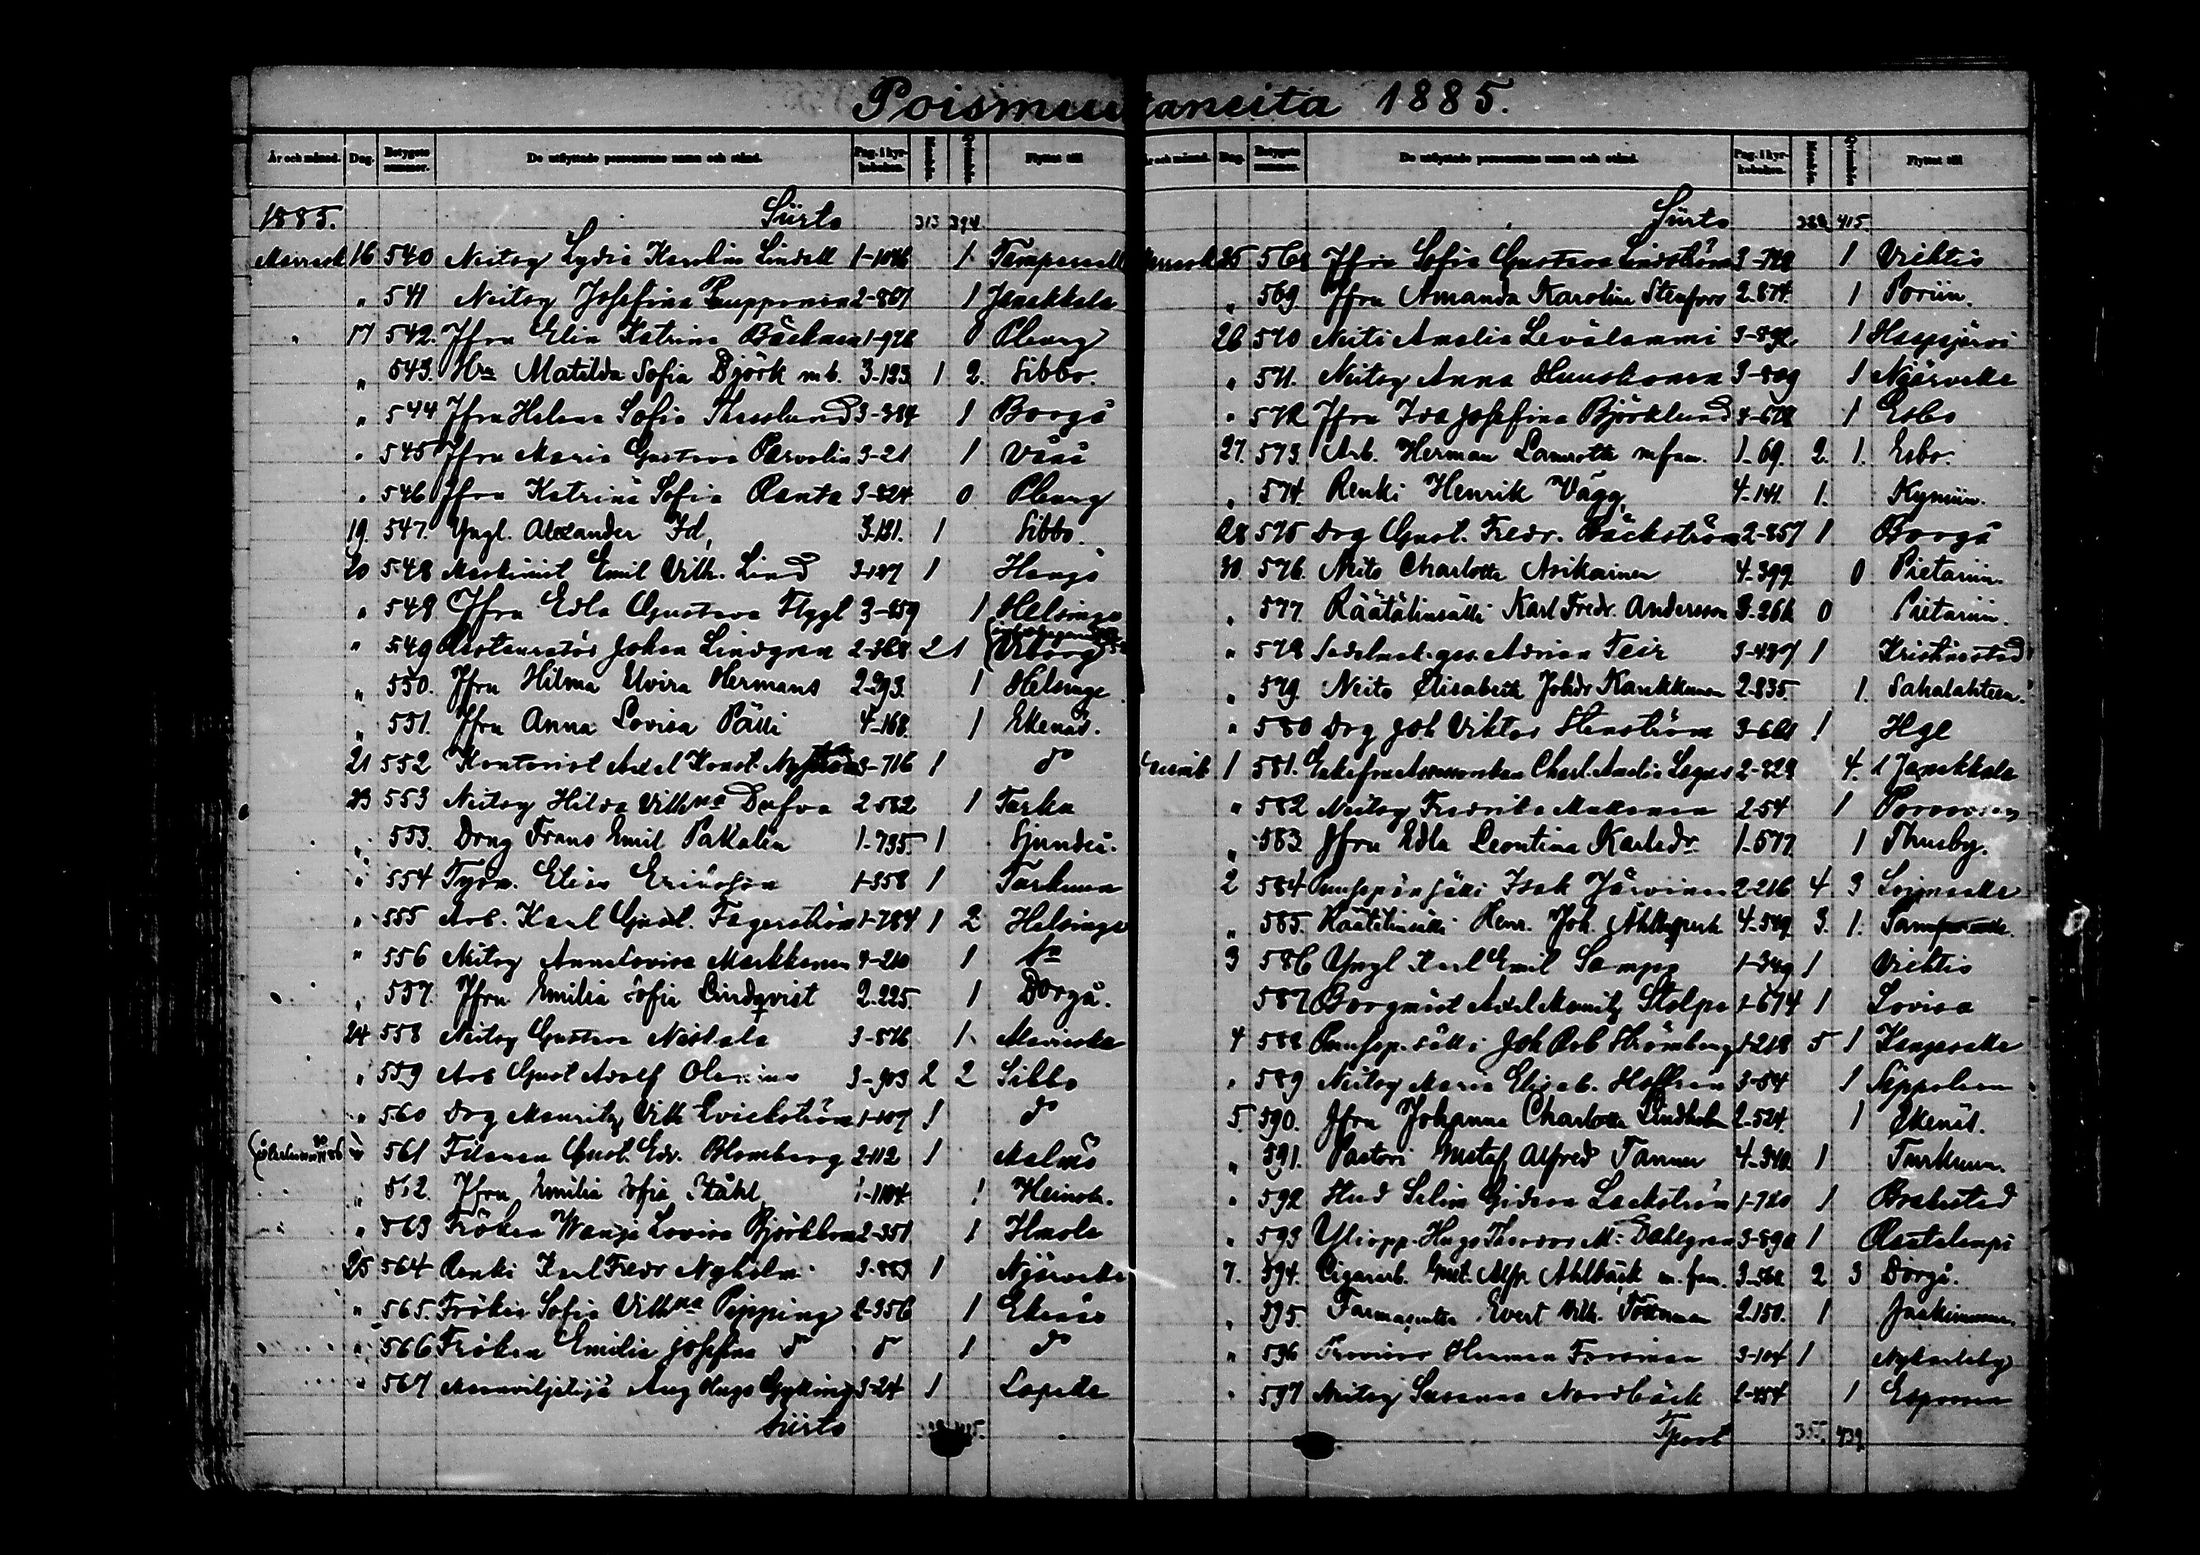 Poismuuttaneita 1885.
År och månad. Dag. Betygets nummer. De utflyttade personernas namn och stånd. Pag. i kyrkoboken. Mankön. Qvinkön. Flyttat till
1885. Siirto 313 394
Marrask 16 540 Neitsy Lydia Karolina Lindell 1-1046 1 Tamperelle
" 541 Neitsy Josefina 2-867 1 Janakkala
" 17 542. Jfru Elin Katrina Bäckman 1-976 0 Pburg
" 543. Hra Matilda Sofia Björk m b. 3-193 1 2. Sibbo.
" 544 Jfru Helena Sofia Thesslund 3-394 1 Borgå
" 545 Jfru Maria Gustava Parvelin 3-21 1 Vånå
" 546 Jfru Katrina Sofia Ranta 3-824 0 Pburg
19. 547. Yngl. Alexander Id, 3-191. 1 Sibbo.
20 548 Maskinist Emil Vilh. Lind 3-197 1 Hangö
" 548 Jfru Edla Gustava Flygt 3-859 1 Helsinge
" 549 Restauratör Johan Lindgren 2-368 2 1 Viborg
" 550. Jfru Hilma Elvira Hermans 2-293. 1 Helsinge
" 551. Jfru Anna Lovisa Pälli 4-168. 1 Ekenäs.
21 552 Kontorist Axel Konst. Nyström 3-716 1 do
23 553 Neitsy Hilda Vilhna Dufva 2-582 1 Turku
" 553. Dräng Frans Emil Pakalen 1-735 1 Sjundeå.
" 554 Työm. Elias Eriksson 1-358 1 Turkuun
" 555 Arb. Karl Gust. Fagerström 1-784 1 2 Helsinge
" 556 Neitsy Anna Lovisa Markkanen 4-210 1 do
" 557. Jfru Emilia Sofia Lindqvist 2-225 1 Borgå.
24 558 Neitsy Gustava Neskala 3-576 1 Maviaska
" 559 Arb Gust Adolf Olenius 3-903 2 2 Sibbo
" 560 Drg Mauritz Vilh Evickström 1-107 1 do
" 561 Filaren Gust. Edv. Blomberg 2-112 1 Malmö
" 562. Jfru Emilia Sofia Ståhl 1-1104 1 Heinola.
" 563 Fröken Wanja Lovisa Björkbom 2-351 1 Imola
25 564 Renki Karl Fredr Nyholm 3-883 1 Nyårvike
" 565. Fröken Sofia Vilhna Pipping 2-356 1 Ekenäs
" 566 Fröken Emilia Josefina do do 1 do
" 567 Maanviljelijä Aug Hugo Gylling 3-24 1 Lopelle
Siirto
År och månad. Dag. Betygets nummer. De utflyttade personernas namn och stånd. Pag. i kyrkoboken. Mankön. Qvinkön. Flyttat till
Siirto 328 415
Marrask 25 568 Jfru Sofia Gustava Lindström 3-722 1 Vichtis
" 569 Jfru Amanda Karolina Stenfors 2-874. 1 Poriin.
26 570 Neiti Amalia Levälammi 3-892. 1 Haapjärvi
" 571. Neitsy Anna Huuskonen 3-809 1
" 572 Jfru Ida Josefina Björklund 4-672 1 Esbo
27. 573. Arb. Herman Lamroth m fam. 1-69. 2. 1. Esbo.
" 574. Renki Henrik Vägg, 4-141. 1. Kymiin.
28 575 Drg Gust. Fredr. Bäckström 2-857 1 Borgå
30. 576. Neito Charlotta Asikainen 4-399. 0 Pietariin.
" 577. Räätälinsälli Karl Fredr. Andersson 3-266 0 Pietariin.
" 578 Sadelmak.ges. Adrian Teir 3-487 1 Kristinestad
" 579. Neito Elisabeth Johdr Kaukkunen 2-835 1. Sahalahteen.
" 580 Drg Joh Viktor Stenström 3-661 1 Hge
Jouluk 1 581. Enkefru Assessorskan Charl. Amalia Lagus 2-828 4. 1 Janakkala
" 582 Neitsy Fredrika Makonen 2-54 1 Porvoosen
" 583 Jfru Edla Leontina Karlsdr 1-577. 1 Thusby.
2 584 Puusepänsälli Isak Järvinen 2-216 4 3 Loimaalle
" 585. Räätälinsälli Henr. Joh. 4-549. 3. 1. Tampereelle.
3 586 Yngl Karl Emil Sampo 1-349 1 Vichtis
587 Borgmäst Axel Mauritz Stolpe 1-674 1 Lovisa
4 588 Puusep.sälli Joh Rob Strömberg 1-218 5 1 Kangasalle
" 589 Neitsy Maria Elisab. Hoffrén 3-54 1 Sippolaan
5. 590. Jfru Johanna Charlotta Lindholm 2-524. 1 Ekenäs.
" 591. Pastori Gustaf Alfred Tanner 4-340. 1 Turkuun.
" 592 Stud Selim Gideon Lackström 1-720 1 Brahestad
" 593 Yliopp. Hugo Theodor M. Dahlgren 3-890 1 Rautalampi
7. 594. Cigararb. Gust. Alfr. Ahlbäck m. fam. 3-562 2 3 Borgå.
" 595. Farmaseutta Evert Vilh. Totterman 2-150. 1 Jaakimaan
" 596 Provisor Herman Forsman 3-104 1 Nykarleby
" 597 Neitsy Susanna Nordbäck 1-454 1 Espooseen
Transp. 355. 439